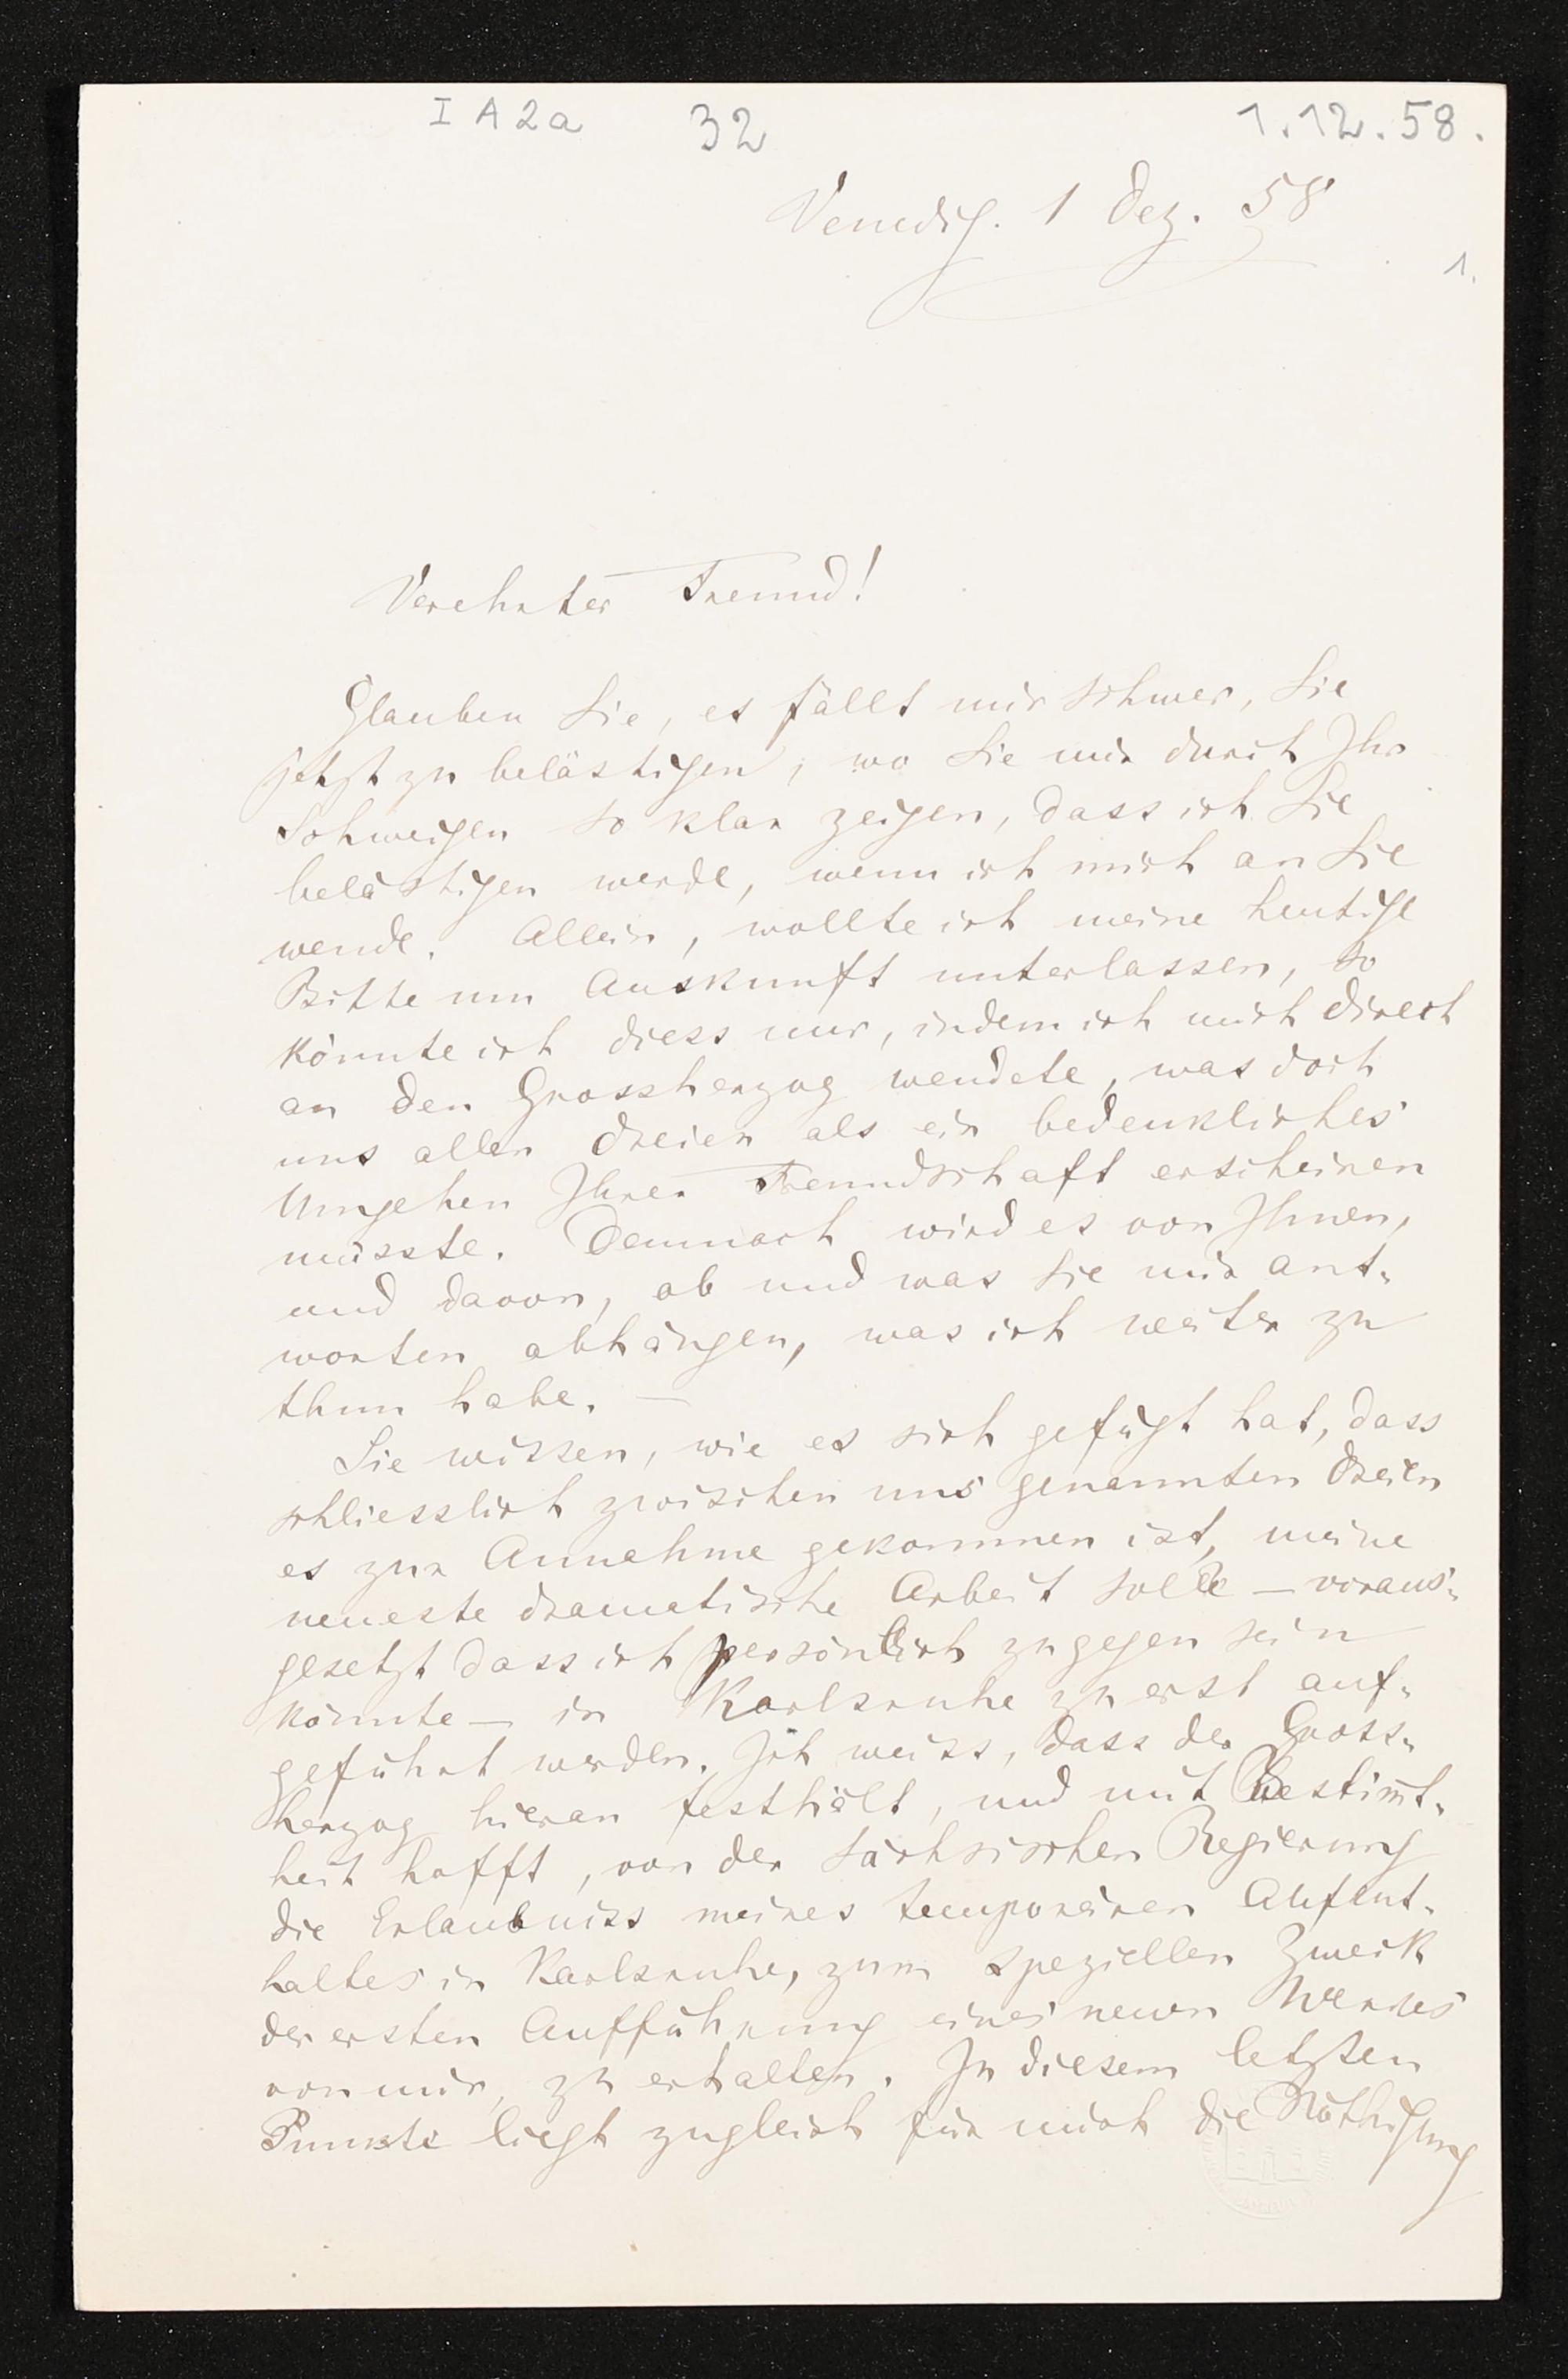 I A 2 a 32 1.12.58.
Venedig. 1 Dez. 58
1.
Verehrter Freund!
Glauben Sie, es fällt mir schwer, Sie
jetzt zu belästigen, wo Sie mir durch Ihr
Schweigen so klar zeigen, dass ich Sie
belästigen werde, wenn ich mich an Sie
wende. Allein, wollte ich meine heutige
Bitte um Auskunft unterlassen, so
könnte ich diess nur, indem ich mich direct
an den Grossherzog wendete, was doch
uns allen dreien als ein bedenkliches
Umgehen Ihrer Freundschaft erscheinen
müsste. Demnach wird es von Ihnen,
und davon, ob und was Sie mir ant-
worten abhängen, was ich weiter zu
thun habe. —
Sie wissen, wie es sich gefügt hat, dass
schliesslich zwischen uns genannten dreien
es zur Annahme gekommen ist, meine
neueste dramatische Arbeit solle — voraus-
gesetzt dass ich persönlich zugegen sein
könnte — in Karlsruhe zuerst auf-
geführt werden. Ich weiss, dass der Gross-
herzog hieran festhält, und mit Bestimt-
heit hofft, von der sächsischen Regierung
die Erlaubniss meines temporären Aufent-
haltes in Karlsruhe, zum speziellen Zweck
der ersten Aufführung eines neuen Werkes
von mir, zu erhalten. In diesem letzten
Punkte liegt zugleich für mich die Nöthigung